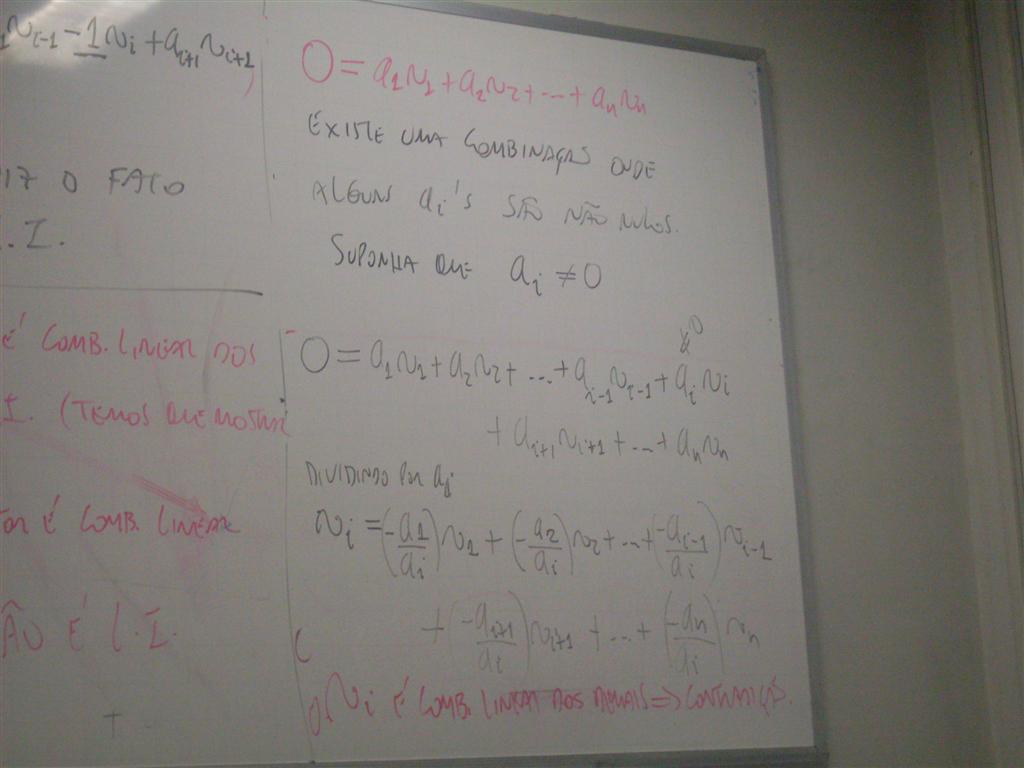 v_{i-1} - 1v_i + a_{i+1}v_{i+1}
O FATO
.I.
É COMB. LINEAR DOS
I. (TEMOS QUE MOSTRAR
É COMB. LINEAR
ÃO É L.I.
0 = a_1v_1 + a_2v_2 + ... + a_nv_n
EXISTE UMA COMBINAÇÃO ONDE
ALGUNS a_i's SÃO NÃO NULOS.
SUPONHA QUE a_i ≠ 0
0 = a_1v_1 + a_2v_2 + ... + a_{i-1}v_{i-1} + a_iv_i
+ a_{i+1}v_{i+1} + ... + a_nv_n
DIVIDINDO POR a_i
v_i = (-a_1/a_i)v_1 + (-a_2/a_i)v_2 + ... + (-a_{i-1}/a_i)v_{i-1}
+ (-a_{i+1}/a_i)v_{i+1} + ... + (-a_n/a_i)v_n
v_i É COMB. LINEAR DOS DEMAIS => CONTRADIÇÃO.